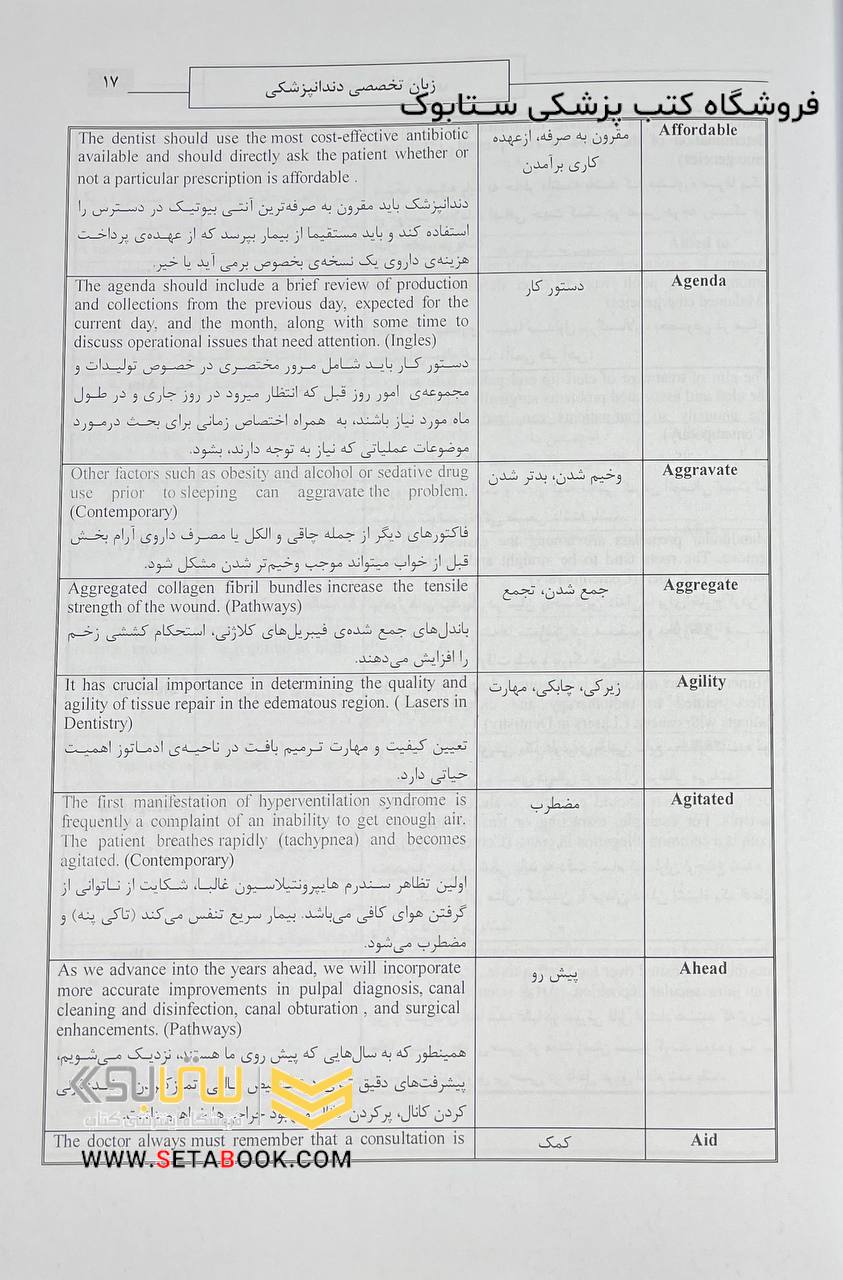 ۱۷
زبان تخصصی دندانپزشکی
فروشگاه کتب پزشکی ستابوک
Affordable
مقرون به صرفه، ازعهده
کاری برآمدن
The dentist should use the most cost-effective antibiotic
available and should directly ask the patient whether or
not a particular prescription is affordable .
دندانپزشک باید مقرون به صرفه‌ترین آنتی بیوتیک در دسترس را
استفاده کند و باید مستقیما از بیمار بپرسد که از عهده‌ی پرداخت
هزینه‌ی داروی یک نسخه‌ی بخصوص برمی آید یا خیر.
Agenda
دستور کار
The agenda should include a brief review of production
and collections from the previous day, expected for the
current day, and the month, along with some time to
discuss operational issues that need attention. (Ingles)
دستور کار باید شامل مرور مختصری در خصوص تولیدات و
مجموعه‌ی امور روز قبل که انتظار میرود در روز جاری و در طول
ماه مورد نیاز باشند، به همراه اختصاص زمانی برای بحث درمورد
موضوعات عملیاتی که نیاز به توجه دارند، بشود.
Aggravate
وخیم شدن، بدتر شدن
Other factors such as obesity and alcohol or sedative drug
use prior to sleeping can aggravate the problem.
(Contemporary)
فاکتورهای دیگر از جمله چاقی و الکل یا مصرف داروی آرام بخش
قبل از خواب میتواند موجب وخیم‌تر شدن مشکل شود.
Aggregate
جمع شدن، تجمع
Aggregated collagen fibril bundles increase the tensile
strength of the wound. (Pathways)
باندل‌های جمع شده‌ی فیبریل‌های کلاژنی، استحکام کششی زخم
را افزایش می‌دهند.
Agility
زیرکی، چابکی، مهارت
It has crucial importance in determining the quality and
agility of tissue repair in the edematous region. ( Lasers in
Dentistry)
تعیین کیفیت و مهارت ترمیم بافت در ناحیه‌ی ادماتوز اهمیت
حیاتی دارد.
Agitated
مضطرب
The first manifestation of hyperventilation syndrome is
frequently a complaint of an inability to get enough air.
The patient breathes rapidly (tachypnea) and becomes
agitated. (Contemporary)
اولین تظاهر سندرم هایپرونتیلاسیون غالبا، شکایت از ناتوانی از
گرفتن هوای کافی می‌باشد. بیمار سریع تنفس می‌کند (تاکی پنه) و
مضطرب می‌شود.
Ahead
پیش رو
As we advance into the years ahead, we will incorporate
more accurate improvements in pulpal diagnosis, canal
cleaning and disinfection, canal obturation , and surgical
enhancements. (Pathways)
همینطور که به سال‌هایی که پیش روی ما هستند، نزدیک می‌شویم،
پیشرفت‌های دقیق
کردن کانال، پرکردن
Aid
کمک
The doctor always must remember that a consultation is
ستابوک
فروشگاه اینترنتی کتاب
WWW.SETABOOK.COM